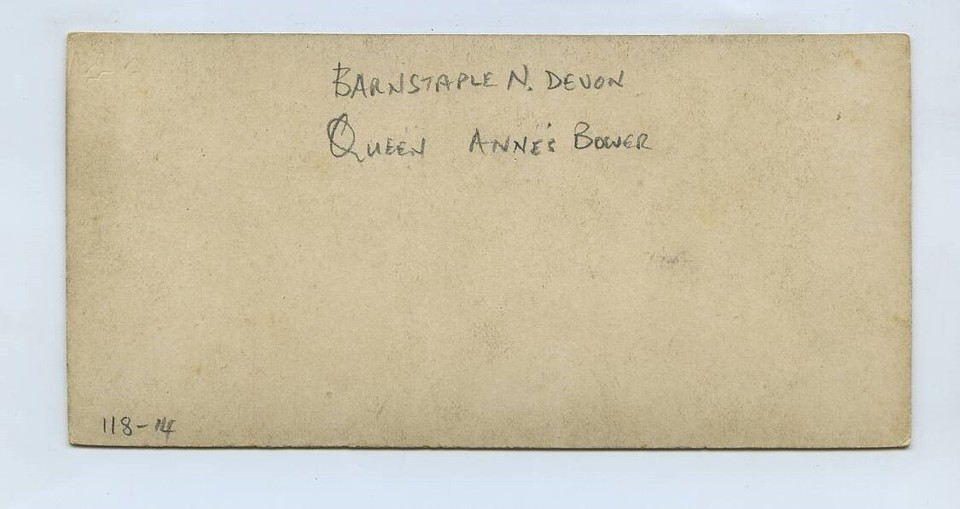 BARNSTAPLE N. DEVON
QUEEN ANNE'S BOWER
118-14